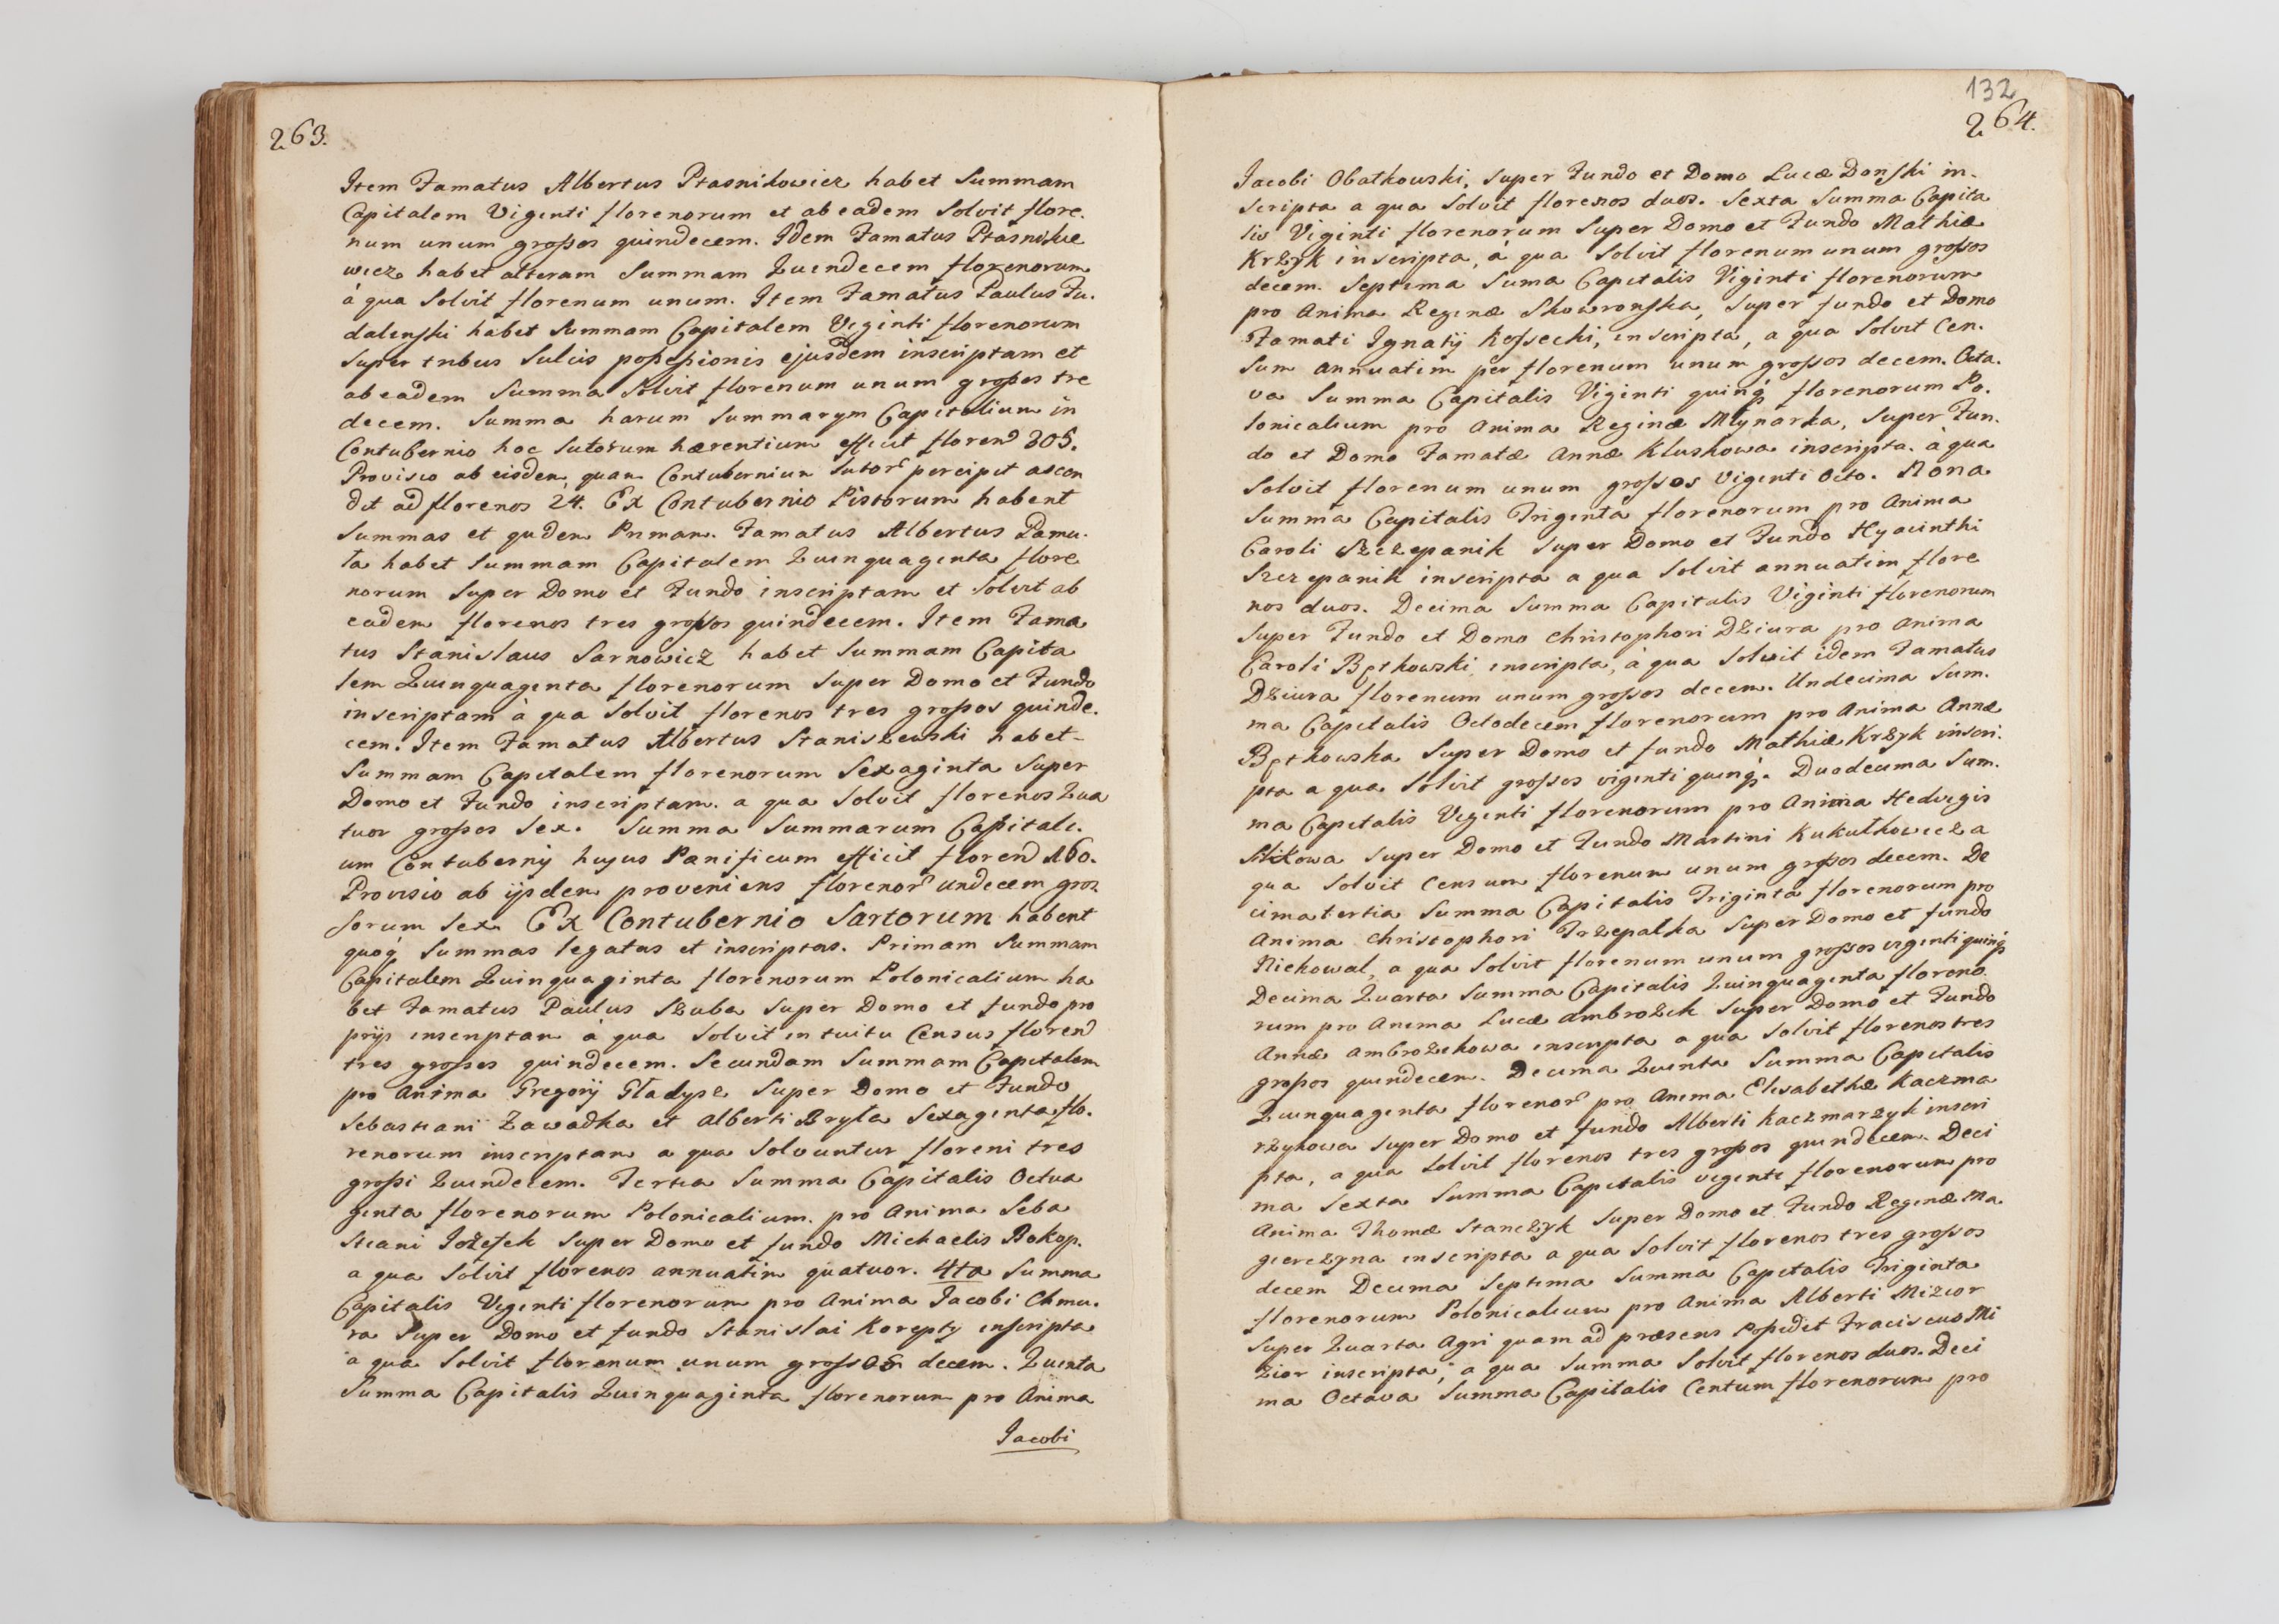 263.
Item Famatus Albertus Ptasnikowicz habet Summam
Capitalem Viginti florenorum et ab eadem Solvit flore.
num unum grossos quindecem. Idem Famatus Ptasnikie
wicz habet alteram Summam Quindecem florenorum
à qua Solvit florenum unum. Item Famatus Paulus Fu.
dalenski habet Summam Capitalem Viginti florenorum
Super tribus Sulcis possessionis ejusdem inscriptam et
ab eadem Summa Solvit florenum unum grossos tre
decem. Summa harum Summarym Capitalium in
Contubernio hoc Sutorum hærentium efficit floren 305.
Provisio ab eisdem, quam Contubernium Sutor percipit ascen
dit ad florenos 24. Ex Contubernio Pistorum habent
Summas et quidem Primam. Famatus Albertus Pamu.
ła habet Summam Capitalem Quinquaginta flore
norum Super Domo et Fundo inscriptam et Solvit ab
eadem florenos tres grossos quindecem. Item Fama
tus Stanislaus Sarnowicz habet Summam Capita
lem Quinquaginta florenorum Super Domo et Fundo
inscriptam à qua Solvit florenos tres grossos quinde.
cem. Item Famatus Albertus Staniszewski habet-
Summam Capitalem florenorum Sexaginta Super
Domo et Fundo inscriptam. a qua Solvit florenos Qua
tuor grossos Sex. Summa Summarum Capitali.
um Contubernÿ hujus Panificum efficit floren 160.
Provisio ab ijsdem proveniens florenor undecem gros
sorum Sex. Ex Contubernio Sartorum habent
quoq Summas legatas et inscriptas. Primam Summam
Capitalem Quinquaginta florenorum Polonicalium ha
bet Famatus Paulus Szuba Super Domo et fundo pro
prijs inscriptam à qua Solvit intuitu Census floren
tres grossos quindecem. Secundam Summam Capitalem
pro Anima Gregorÿ Gładysz Super Domo et Fundo
Sebastiani Zawadka et Alberti Bryla Sexaginta flo.
renorum inscriptam a qua Solvuntur floreni tres
grossi Quindecem. Tertia Summa Capitalis Octua
ginta florenorum Polonicalium. pro Anima Seba
stiani Jożefek Super Domo et fundo Michaelis Rokop.
a qua Solvit florenos annuatim quatuor. 4ta Summa
Capitalis Viginti florenorum pro Anima Jacobi Chmu.
ra Super Domo et fundo Stanislai Korepty inscripta
a qua Solvit florenum unum grossos decem. Quinta
Summa Capitalis Quinquaginta florenorum pro Anima
Jacobi
132
264.
Jacobi Obatkowski, Super Fundo et Domo Lucæ Donski in.
scripta a qua Solvit florenos duos. Sexta Summa Capita
lis Viginti florenorum Super Domo et Fundo Mathiæ
Krzyk inscripta, à qua Solvit florenum unum grossos
decem. Septima Suma Capitalis Viginti florenorum
pro Anima Reginæ Skowronska, Super fundo et Domo
Famati Ignatÿ Kossecki, inscripta, a qua Solvit Cen.
sum annuatim per florenum unum grossos decem. Octa.
va Summa Capitalis Viginti quinq florenorum Po.
lonicalium pro Anima Reginæ Młynarka, Super Fun.
do et Domo Famatæ Annæ Kluskowa inscripta. à qua
Solvit florenum unum grossos Viginti Octo. Nona
Summa Capitalis Triginta florenorum pro Anima
Caroli Szczepanik Super Domo et Fundo Hyacinthi
Szczepanik inscripta a qua Solvit annuatim flore
nos duos. Decima Summa Capitalis Viginti florenorum
Super Fundo et Domo Christophori Dziura pro Anima
Caroli Bętkowski inscripta, à qua Solvit idem Famatus
Dziura florenum unum grossos decem. Undecima Sum.
ma Capitalis Octodecem florenorum pro Anima Annæ
Bętkowska Super Domo et fundo Mathiæ Krzyk inscri.
pta a qua Solvit grossos viginti quinq. Duodecima Sum.
ma Capitalis Viginti florenorum pro Anima Hedvigis
Super Domo et Fundo Martini Kukułkowicz a
qua Solvit Censum florenum unum grossos decem. De
cima tertia Summa Capitalis Triginta florenorum pro
Anima Christophori Trzepałka Super Domo et fundo
Niekowal, a qua Solvit florenum unum grossos viginti quinq
Decima Quarta Summa Capitalis Quinquaginta floreno.
rum pro Anima Lucæ Ambrożek Super Domo et Fundo
Annæ Ambrożekowa inscripta a qua Solvit florenos tres
grossos quindecem. Decima Quinta Summa Capitalis
Quinquaginta florenor pro Anima Elisabethæ Kaczma
rzykowa Super Domo et fundo Alberti Kaczmarzyk inscri
pta, a qua Solvit florenos tres grossos quindecem. Deci
ma Sexta Summa Capitalis viginti florenorum pro
Anima Thomæ Stanczyk Super Domo et Fundo Reginæ Ma
gierczyna inscripta a qua Solvit florenos tres grossos
decem Decima Septima Summa Capitalis Triginta
florenorum Polonicalium pro Anima Alberti Mizior
Super Quarta Agri quam ad præsens Possidet Fraciscus Mi
zior inscripta, a qua Summa Solvit florenos duos. Deci
ma Octava Summa Capitalis Centum florenorum pro